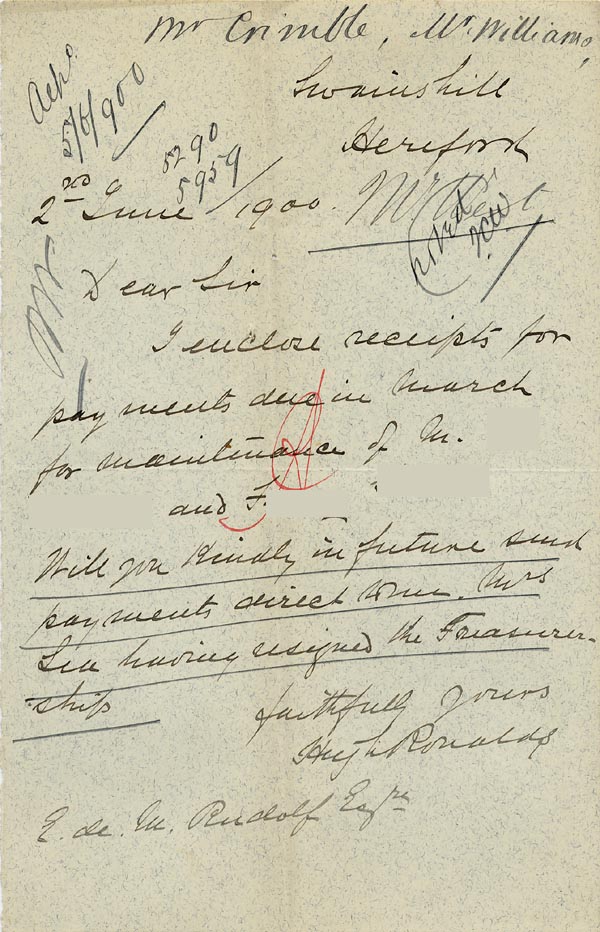 Mr Crimble, Mr. Williams,
Ackd
5/6/900
Swainshill
Hereford
5290
5959
2nd June 1900.
Mr
Mr
Dear Sir
I enclose receipts for
payments due in March
for maintenance of M.
and F.
Will you kindly in future send
payments direct to me. Mrs
Lea having resigned the Treasurer-
ship
faithfully yours
Hugh Ronalds
E. de. M. Rudolf Esqre